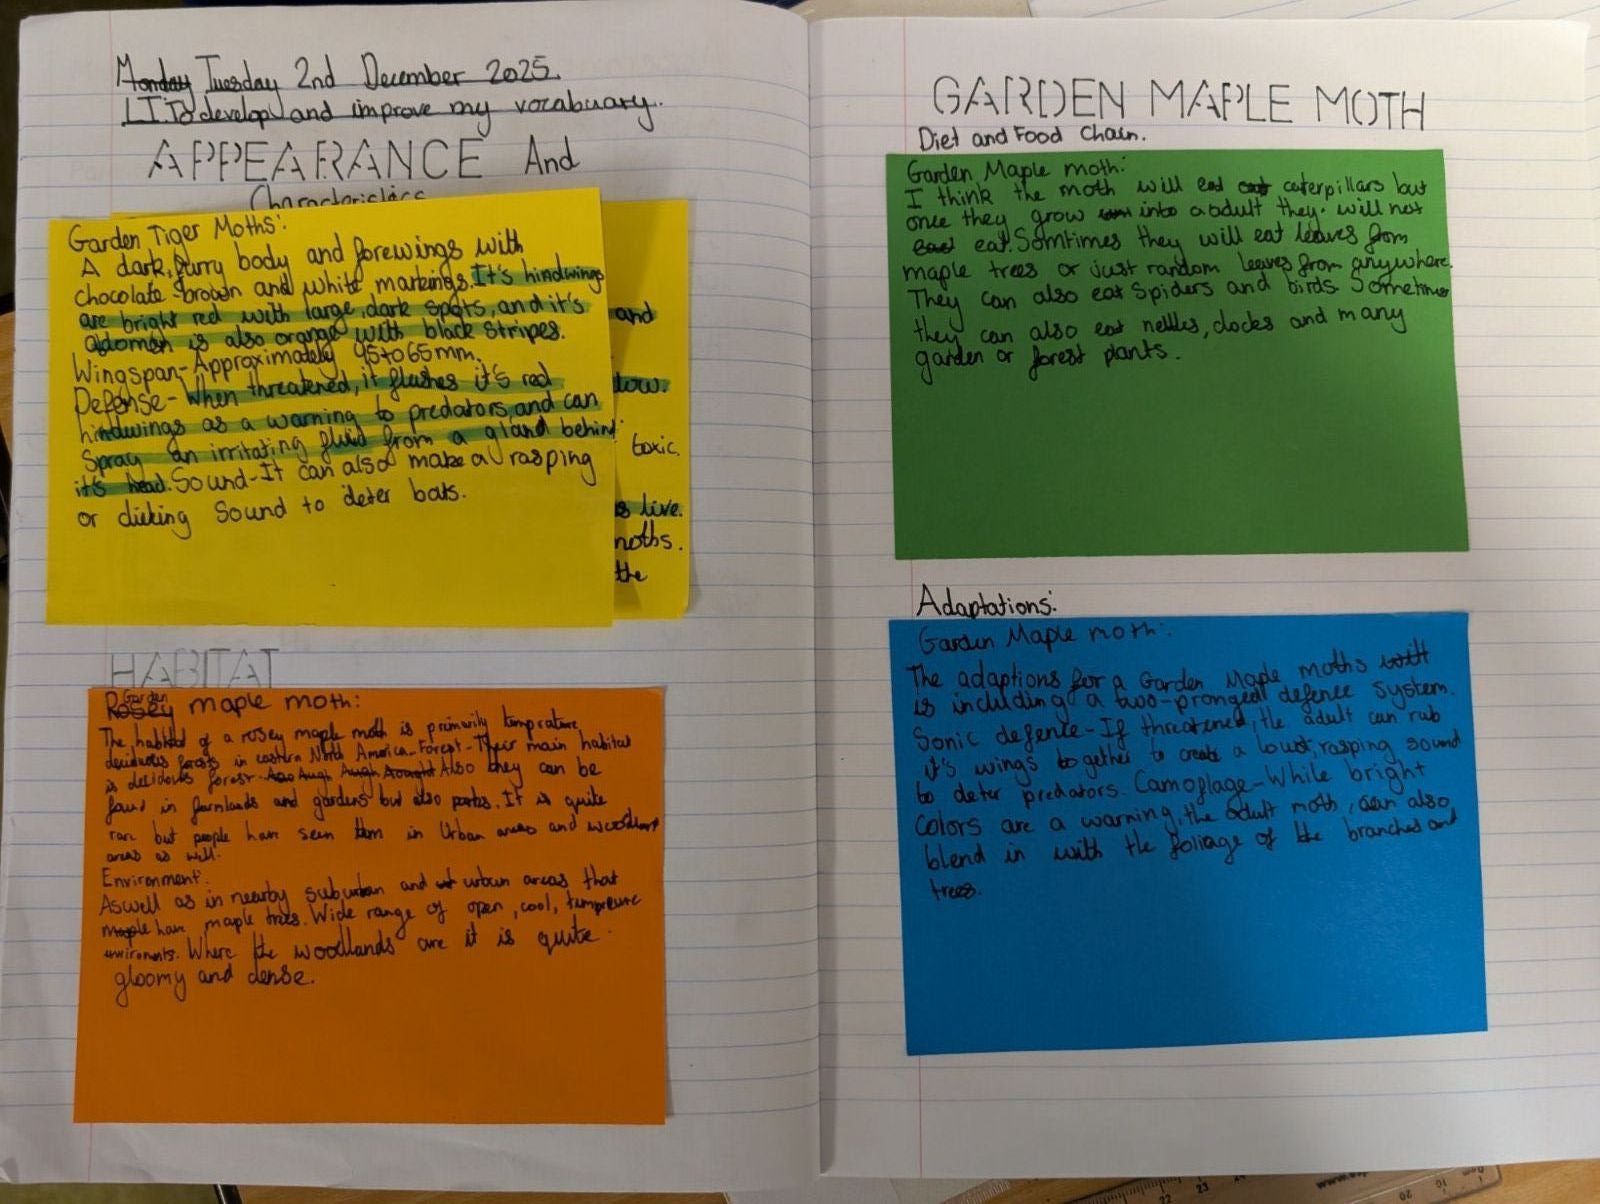 Monday Tuesday 2nd December 2025.
L.I. To develop and improve my vocabuary.
APPEARANCE And
Characteristics
Garden Tiger Moths:
A dark, furry body and forewings with
chocolate-brown and white markings. It's hindwings
are bright red with large, dark spots, and it's
abdomen is also orange with black stripes.
Wingspan-Approximately 45to65mm.
Defense-When threatened, it flashes it's red
hindwings as a warning to predators, and can
spray an irritating fluid from a gland behind
it's head. Sound-It can also make a rasping
or clicking sound to deter bats.
and
low.
toxic.
live.
moths.
the
HABITAT
Garden
Rosey maple moth:
The habitat of a rosey maple moth is primarily temprature
deciduous forests in eastern North America-Forest-Their main habitat
is decidous forest. Also they can be
found in farmlands and gardens but also parks. It is quite
rare but people have seen them in Urban areas and woodland
areas as well.
Environment:
Aswell as in nearby suburban and urban areas that
maple have maple trees. Wide range of open, cool, tempreure
enviroments. Where the woodlands are it is quite
gloomy and dense.
GARDEN MAPLE MOTH
Diet and Food Chain.
Garden Maple moth:
I think the moth will eat eat caterpillars but
once they grow into a adult they will not
eat eat. Somtimes they will eat leaves from
maple trees or just random leaves from anywhere.
They can also eat spiders and birds. Sometimes
they can also eat nettles, docks and many
garden or forest plants.
Adaptations:
Garden Maple moth:
The adaptions for a Garden Maple moths with
is including a two-pronged defence system.
Sonic defence-If threatened, the adult can rub
it's wings together to create a loud, rasping sound
to deter predators. Camoplage-While bright
colors are a warning, the adult moth, can also
blend in with the foliage of the branches and
trees.